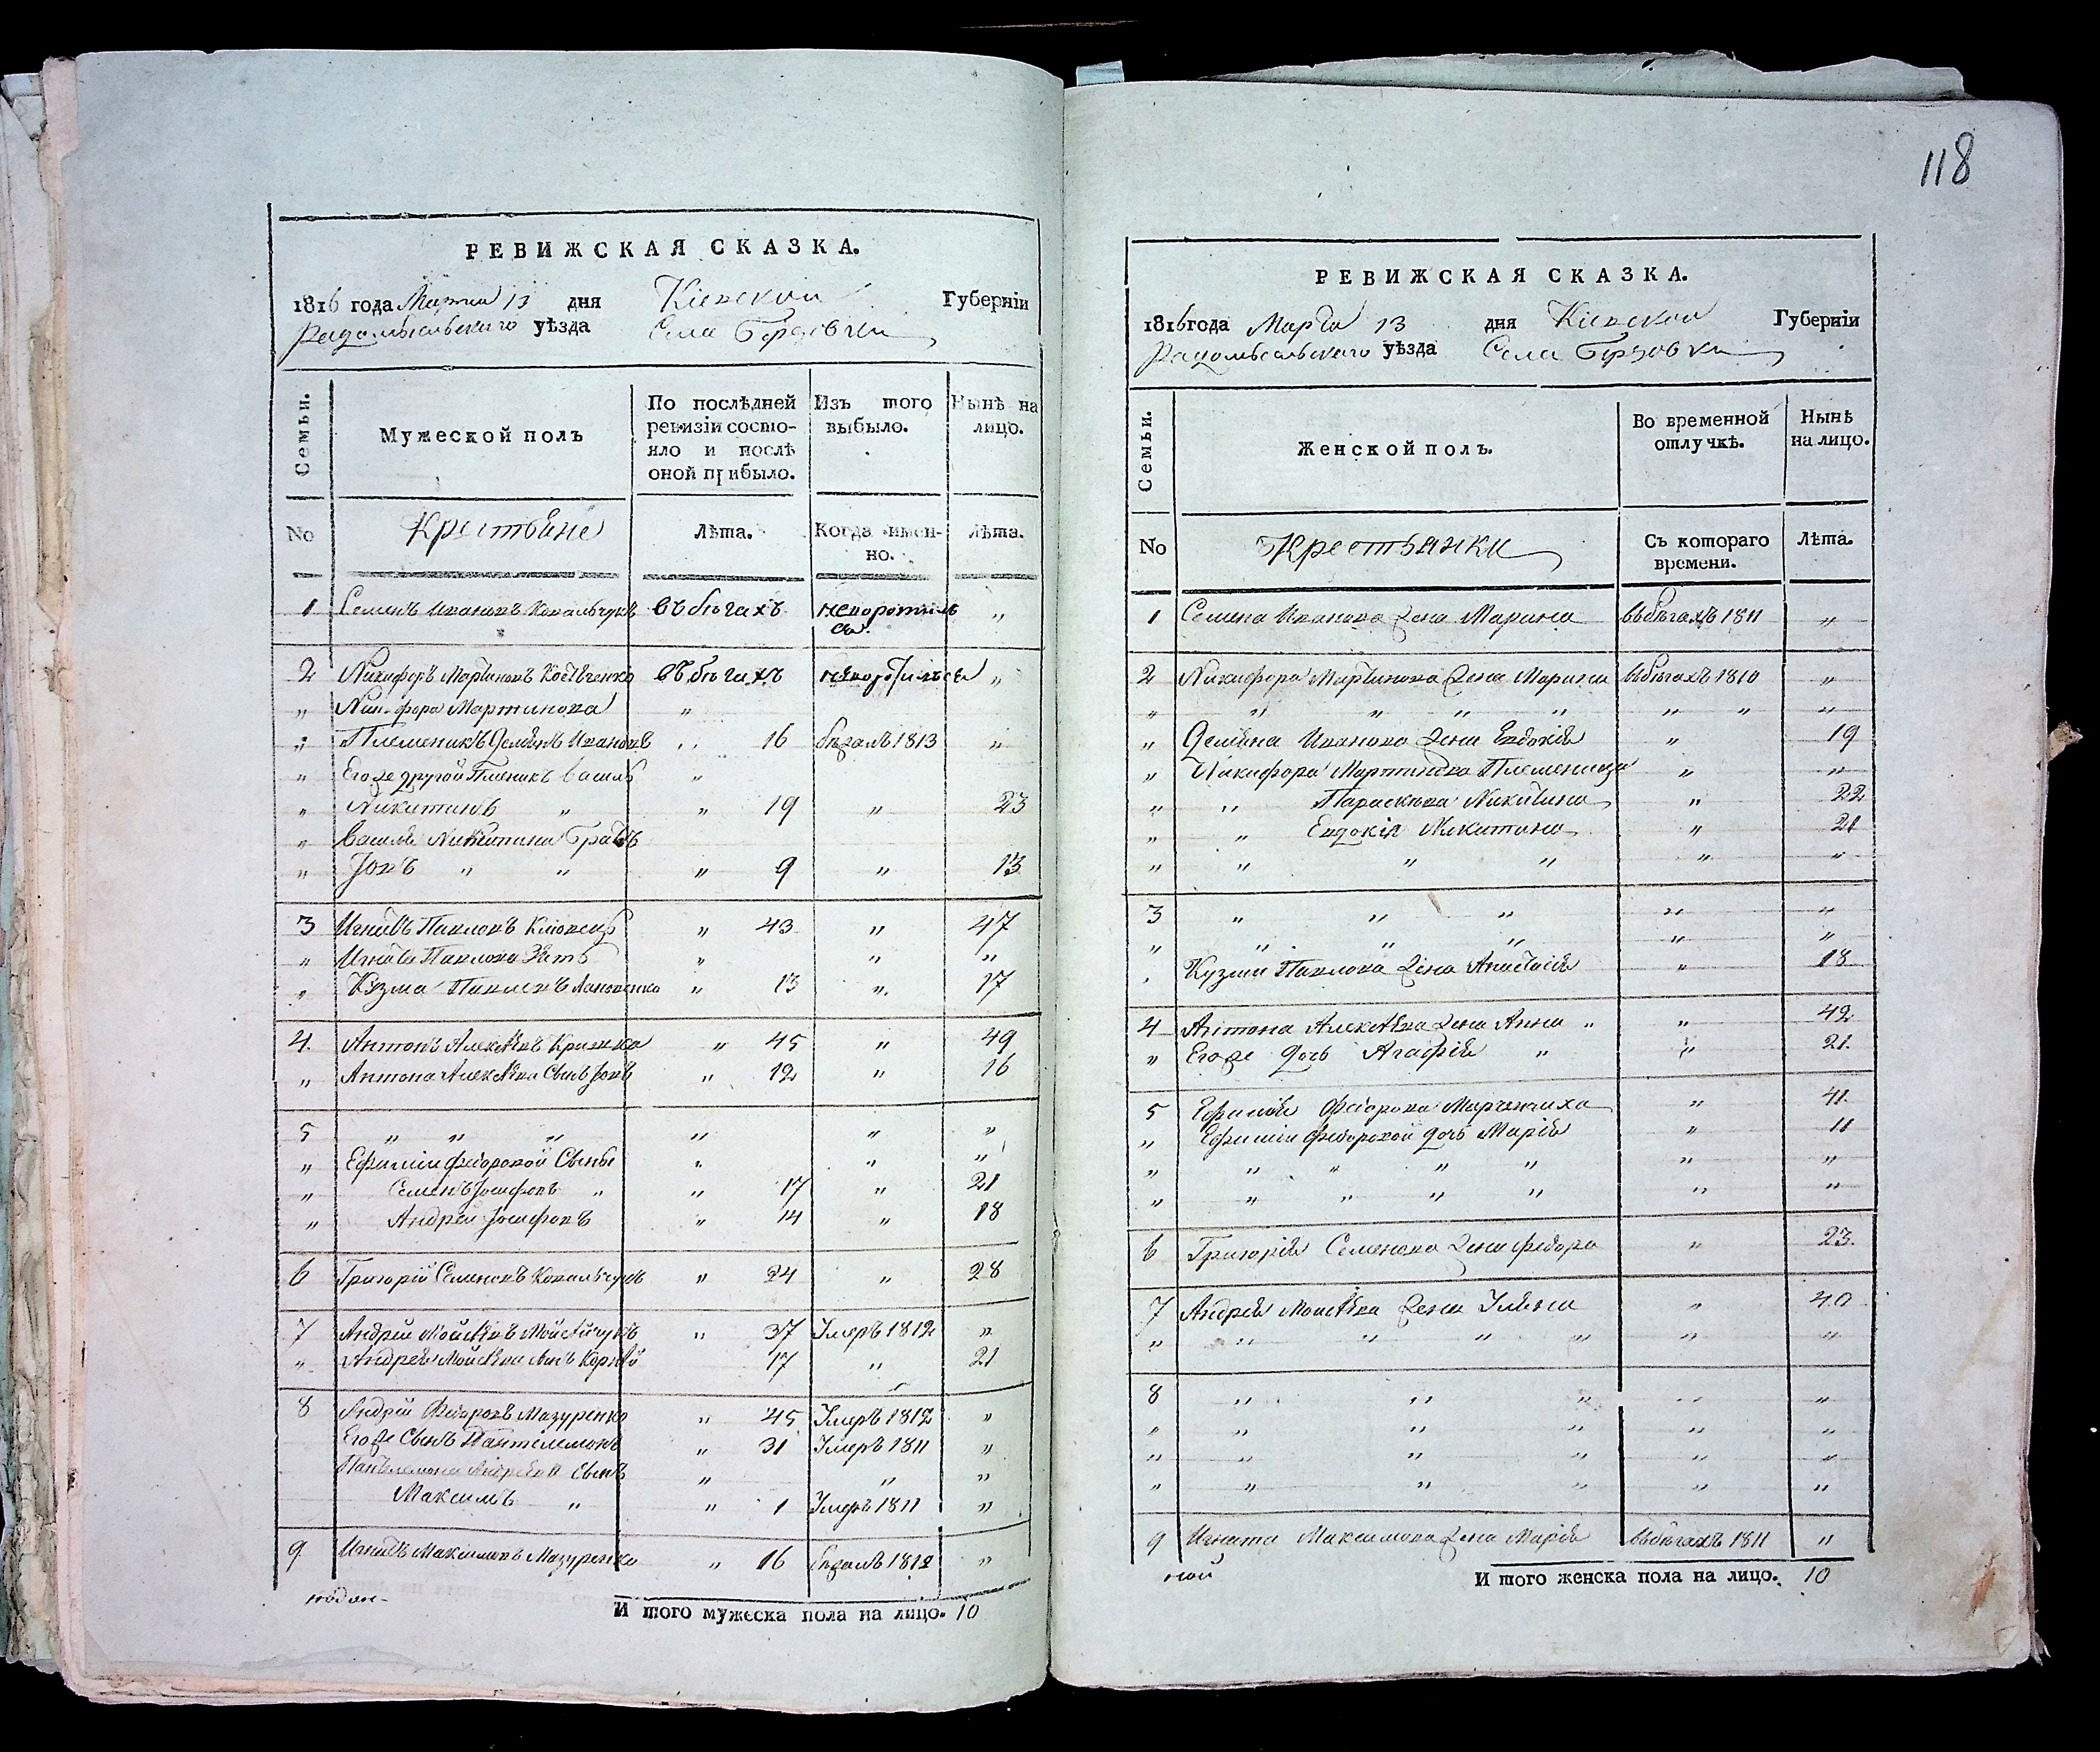 118
РЕВИЖСКАЯ СКАЗКА.
1816 года Марта 13 дня Кіевской Губерніи
Радомысльскаго уѣзда Села Борщовки
Семьи.
Мужеской полъ
По послѣдней ревизіи состояло и послѣ оной прибыло.
Изъ того выбыло.
Нынѣ на лицо.
No Крестьяне Лѣта. Когда имен-но. Лѣта.
1 Семенъ Ивановъ Ковальчукъ въ бѣгахъ неворотился „
2 Никифоръ Мартиновъ въ бѣгахъ неворотился „
„ Никифора Мартинова „
„ Племеникъ Демянъ Ивановъ „ 16 бѣжалъ 1813 „
„ Его же другой Племеникъ Василь „
„ Никитинъ „ „ 19 „ 23
„ Василя Никитина Братъ
„ Іовъ „ „ „ 9 „ 13
3 Игнатъ Павловъ „ 43 „ 47
„ Игната Павлова Зять „ „ „
„ Кузма Павловъ „ 13 „ 17
4 Антонъ Алексѣевъ „ 45 „ 49
„ Антона Алексѣева Сынъ Іовъ „ 12 „ 16
5 „ „ „ „ „ „
„ Ефиміи Федоровой Сыны „ „ „
„ Семенъ Іосифовъ „ „ 17 „ 21
„ Андрей Іосифовъ „ 14 „ 18
6 Григорій Семеновъ Ковальчукъ „ 24 „ 28
7 Андрей Мойсѣевъ Мойсѣйчукъ „ 37 Умеръ 1812 „
„ Андрея Мойсѣева сынъ Корнѣй 17 „ 21
8 Андрей Федоровъ Мазуренко „ 45 Умеръ 1812 „
Его же Сынъ Пантелемонъ „ 31 Умеръ 1811 „
Пантелемона Андреева Сынъ „ „ „
Максимъ „ „ 1 Умеръ 1811 „
9 Игнатъ Максимовъ Мазуренко „ 16 бѣжалъ 1812 „
И того мужеска пола на лицо. 10
РЕВИЖСКАЯ СКАЗКА.
1816 года Марта 13 дня Кіевской Губерніи
Радомысльскаго уѣзда Села Борщовки
Семьи.
Женской полъ.
Во временной отлучкѣ.
Нынѣ на лицо.
No Крестьянки Съ котораго времени. Лѣта.
1 Семена Иванова жена Марина въ бѣгахъ 1811 „
2 Никифора Мартинова жена Марина въ бѣгахъ 1810 „
„ „ „ „ „ „ „ „
„ Демяна Иванова жена Евдокія „ 19
„ Никифора Мартинова Племеница „ „
„ „ Параскева Никитина „ 22
„ „ Евдокія Никитина „ 21
„ „ „ „ „ „
3 „ „ „ „ „
„ „ „ „ „ „
„ Кузми Павлова жена Анастасія „ 18
4 Антона Алексѣева жена Анна „ „ 42
„ Его же дочь Агафія „ „ 21
5 Ефимія Федорова „ 41
„ Ефиміи Федоровой дочь Марія „ 11
„ „ „ „ „ „ „
„ „ „ „ „ „ „
6 Григорія Семенова жена Федора „ 23
7 Андрея Мойсѣева жена Ульяна „ 40
„ „ „ „ „ „ „
8 „ „ „ „ „
„ „ „ „ „ „
„ „ „ „ „ „
„ „ „ „ „ „
9 Игната Максимова жена Марія въ бѣгахъ 1811 „
И того женска пола на лицо. 10